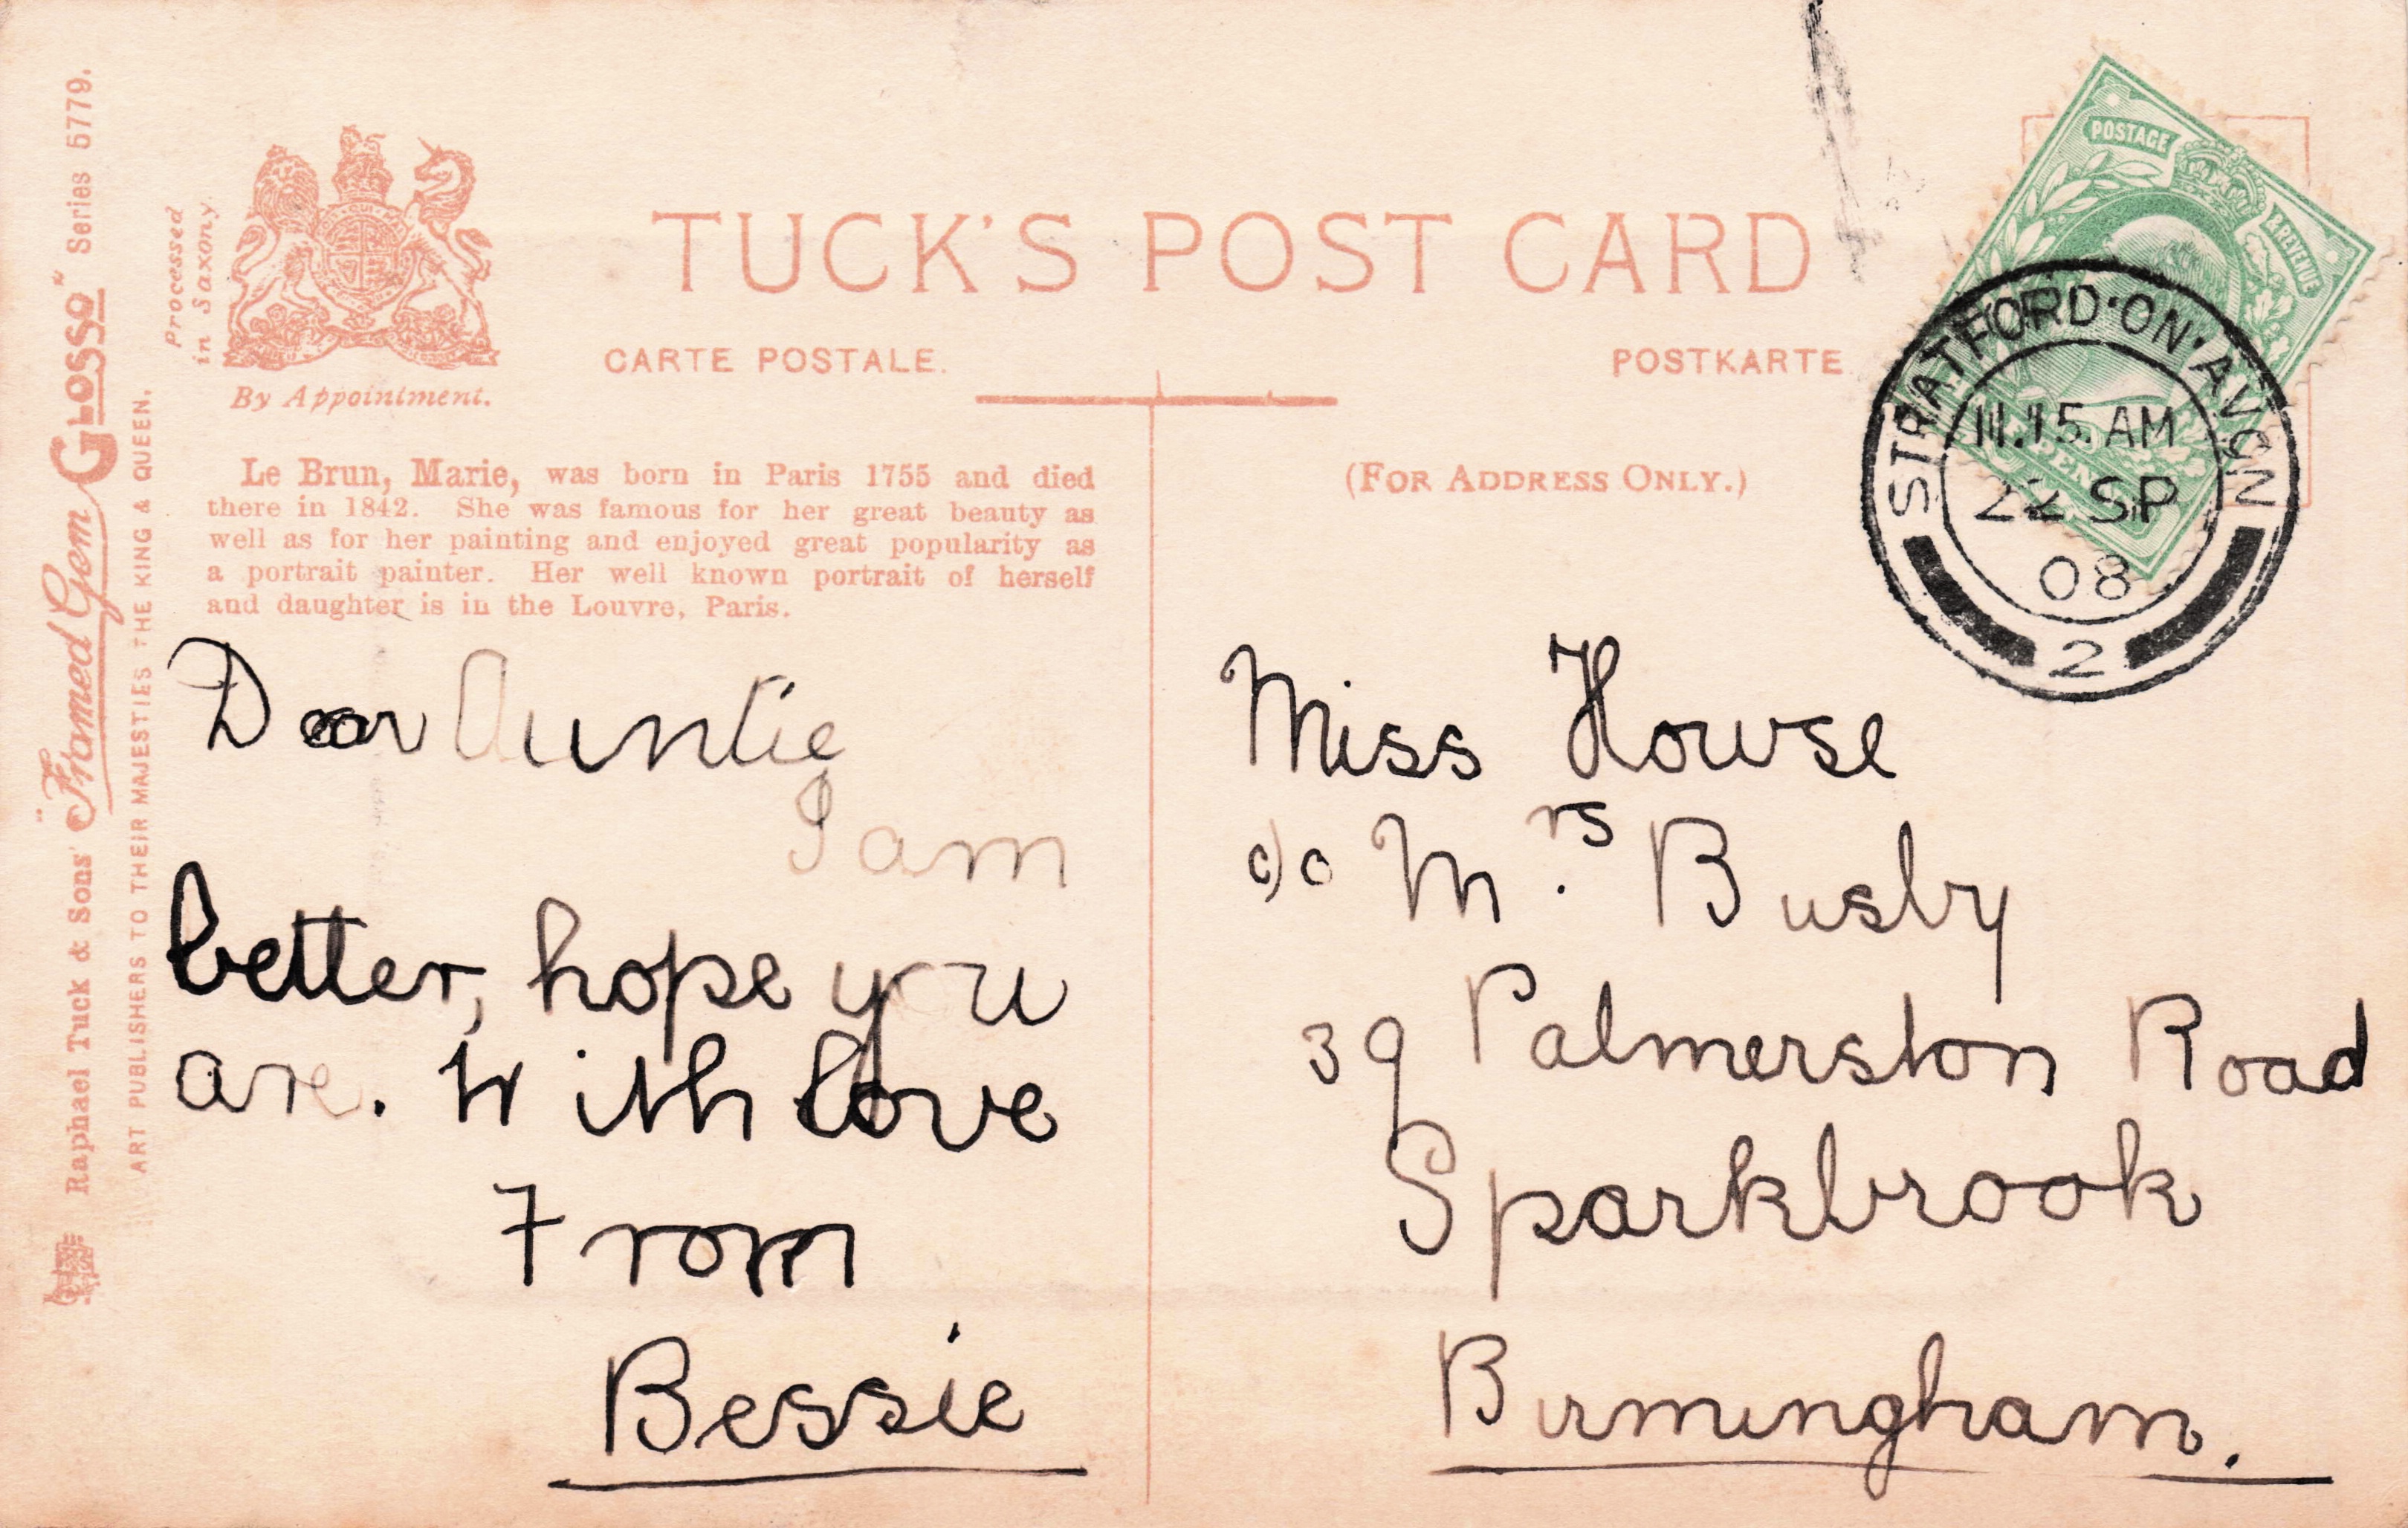 TUCK'S POST CARD
CARTE POSTALE.
POSTKARTE
By Appointment.
Processed
in Saxony.
Raphael Tuck & Sons' "Framed Gem Glosso" Series 5779.
ART PUBLISHERS TO THEIR MAJESTIES THE KING & QUEEN.
Le Brun, Marie, was born in Paris 1755 and died
there in 1842. She was famous for her great beauty as
well as for her painting and enjoyed great popularity as
a portrait painter. Her well known portrait of herself
and daughter is in the Louvre, Paris.
(FOR ADDRESS ONLY.)
POSTAGE
& REVENUE
STRATFORD·ON·AVON
11.15 AM
22 SP
08
2
Dear Auntie
I am
better, hope you
are. With love
From
Bessie
Miss Howse
c/o Mrs. Busby
39 Palmerston Road
Sparkbrook
Birmingham.